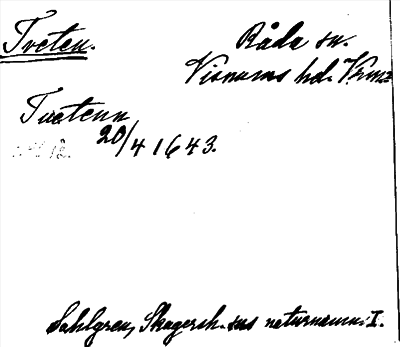 Tveten.
Råda sn.
Visnums hd. Vrml.
Tvetenn
20/4 1643.
Sahlgren, Skagersh. sns naturnamn: I.